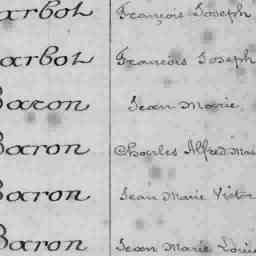 arbot François Joseph
arbot François Joseph
Baron Jean Marie
Baron Charles Alfred Mar
Baron Jean Marie Victor
Baron Jean Marie Louis